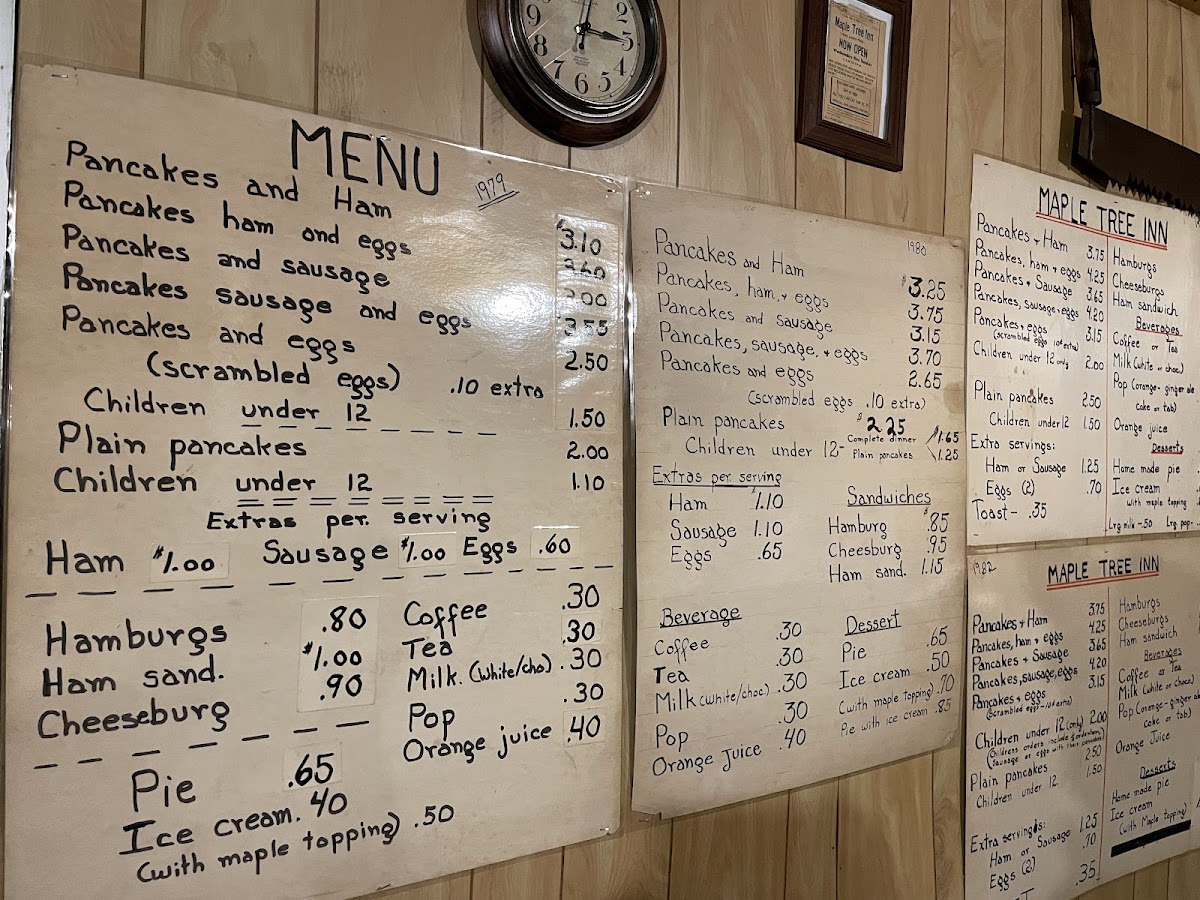 9 8 7 6 5 4 3 2
Maple Tree Inn
NOW OPEN
MENU
1979
Pancakes and Ham $3.10
Pancakes ham and eggs 3.60
Pancakes and sausage 3.00
Pancakes sausage and eggs 3.55
Pancakes and eggs 2.50
(scrambled eggs) .10 extra
Children under 12 1.50
Plain pancakes 2.00
Children under 12 1.10
Extras per. serving
Ham $1.00 Sausage $1.00 Eggs .60
Hamburgs .80
Ham sand. $1.00
Cheeseburg .90
Coffee .30
Tea .30
Milk. (White/cho) .30
Pop .30
Orange juice .40
Pie .65
Ice cream .40
(with maple topping) .50
1980
Pancakes and Ham $3.25
Pancakes, ham, + eggs 3.75
Pancakes and sausage 3.15
Pancakes, sausage, + eggs 3.70
Pancakes and eggs 2.65
(scrambled eggs .10 extra)
Plain pancakes $2.25
Children under 12- Complete dinner $1.65
Plain pancakes 1.25
Extras per serving
Ham $1.10
Sausage 1.10
Eggs .65
Sandwiches
Hamburg $.85
Cheeseburg .95
Ham sand. 1.15
Beverage
Coffee .30
Tea .30
Milk (white/choc.) .30
Pop .30
Orange juice .40
Dessert
Pie .65
Ice cream .50
(with maple topping) .70
Pie with ice cream .85
MAPLE TREE INN
Pancakes + Ham 3.75
Pancakes, ham + eggs 4.25
Pancakes + Sausage 3.65
Pancakes, sausage + eggs 4.20
Pancakes + eggs 3.15
(scrambled eggs 10¢ extra)
Children under 12 only 2.00
Plain pancakes 2.50
Children under 12 1.50
Extra servings:
Ham or Sausage 1.25
Eggs (2) .70
Toast - .35
Hamburgs
Cheeseburgs
Ham sandwich
Beverages
Coffee or Tea
Milk (white or choc.)
Pop (orange- ginger ale
coke or tab)
Orange juice
Desserts
Home made pie
Ice cream
with maple topping
Lrg milk -.50 Lrg pop-
1982
MAPLE TREE INN
Pancakes + Ham 3.75
Pancakes, ham + eggs 4.25
Pancakes + Sausage 3.65
Pancakes, sausage, eggs 4.20
Pancakes + eggs 3.15
(Scrambled eggs - 10¢ extra)
Children under 12 (only) 2.00
Plain pancakes 2.50
Children under 12. 1.50
Extra servings:
Ham or Sausage 1.25
Eggs (2) .70
.35
Hamburgs
Cheeseburgs
Ham sandwich
Beverages
Coffee or Tea
Milk (white or choco.)
Pop (orange-ginger ale
coke or tab)
Orange Juice
Desserts
Home made pie
Ice cream
(with Maple topping)